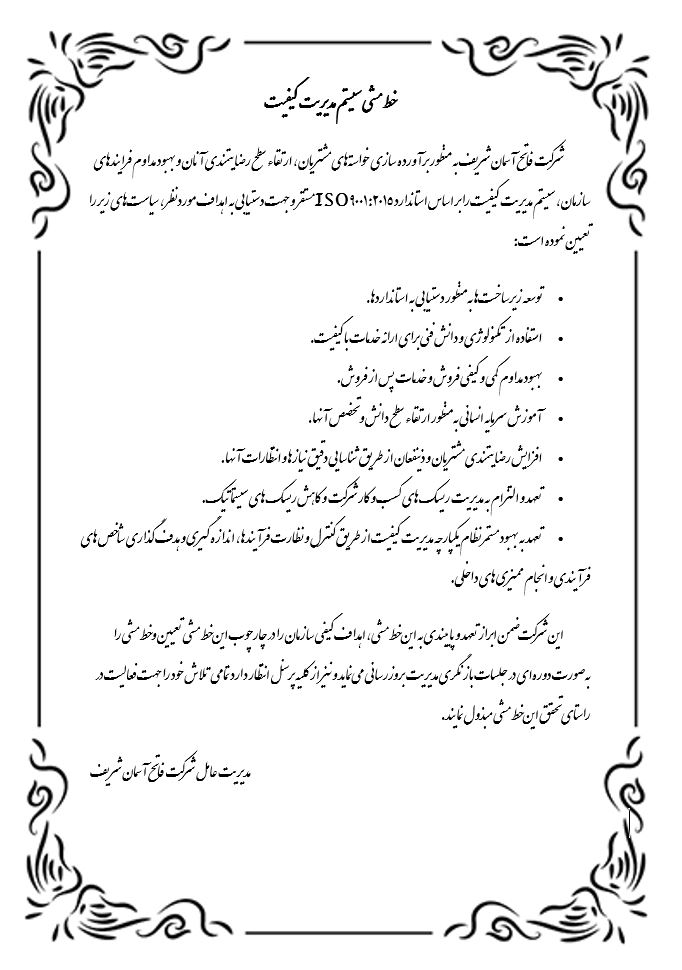 خط مشی سیستم مدیریت کیفیت
شرکت فاتح آسمان شریف به منظور برآورده سازی خواسته‌های مشتریان، ارتقاء سطح رضایتمندی آنان و بهبود مداوم فرایندهای
سازمان، سیستم مدیریت کیفیت را بر اساس استاندارد ISO ۹۰۰۱:۲۰۱۵ مستقر و جهت دستیابی به اهداف مورد نظر، سیاست‌های زیر را
تعیین نموده است:
• توسعه زیرساخت‌ها به منظور دستیابی به استانداردها.
• استفاده از تکنولوژی و دانش فنی برای ارائه خدمات با کیفیت.
• بهبود مداوم کمی و کیفی فروش و خدمات پس از فروش.
• آموزش سرمایه انسانی به منظور ارتقاء سطح دانش و تخصص آنها.
• افزایش رضایتمندی مشتریان و ذینفعان از طریق شناسایی دقیق نیازها و انتظارات آنها.
• تعهد و التزام به مدیریت ریسک‌های کسب و کار شرکت و کاهش ریسک‌های سیستماتیک.
• تعهد به بهبود مستمر نظام یکپارچه مدیریت کیفیت از طریق کنترل و نظارت فرآیندها، اندازه گیری و هدف گذاری شاخص های
فرآیندی و انجام ممیزی های داخلی.
این شرکت ضمن ابراز تعهد و پایبندی به این خط مشی، اهداف کیفی سازمان را در چارچوب این خط مشی تعیین و خط مشی را
به صورت دوره‌ای در جلسات بازنگری مدیریت بروزرسانی می‌نماید و نیز از کلیه پرسنل انتظار دارد تمامی تلاش خود را جهت فعالیت در
راستای تحقق این خط مشی مبذول نمایند.
مدیریت عامل شرکت فاتح آسمان شریف